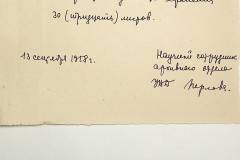 30 (тридцать) листов.
13 сентября 1958 г.
Научный сотрудник
архивного отдела